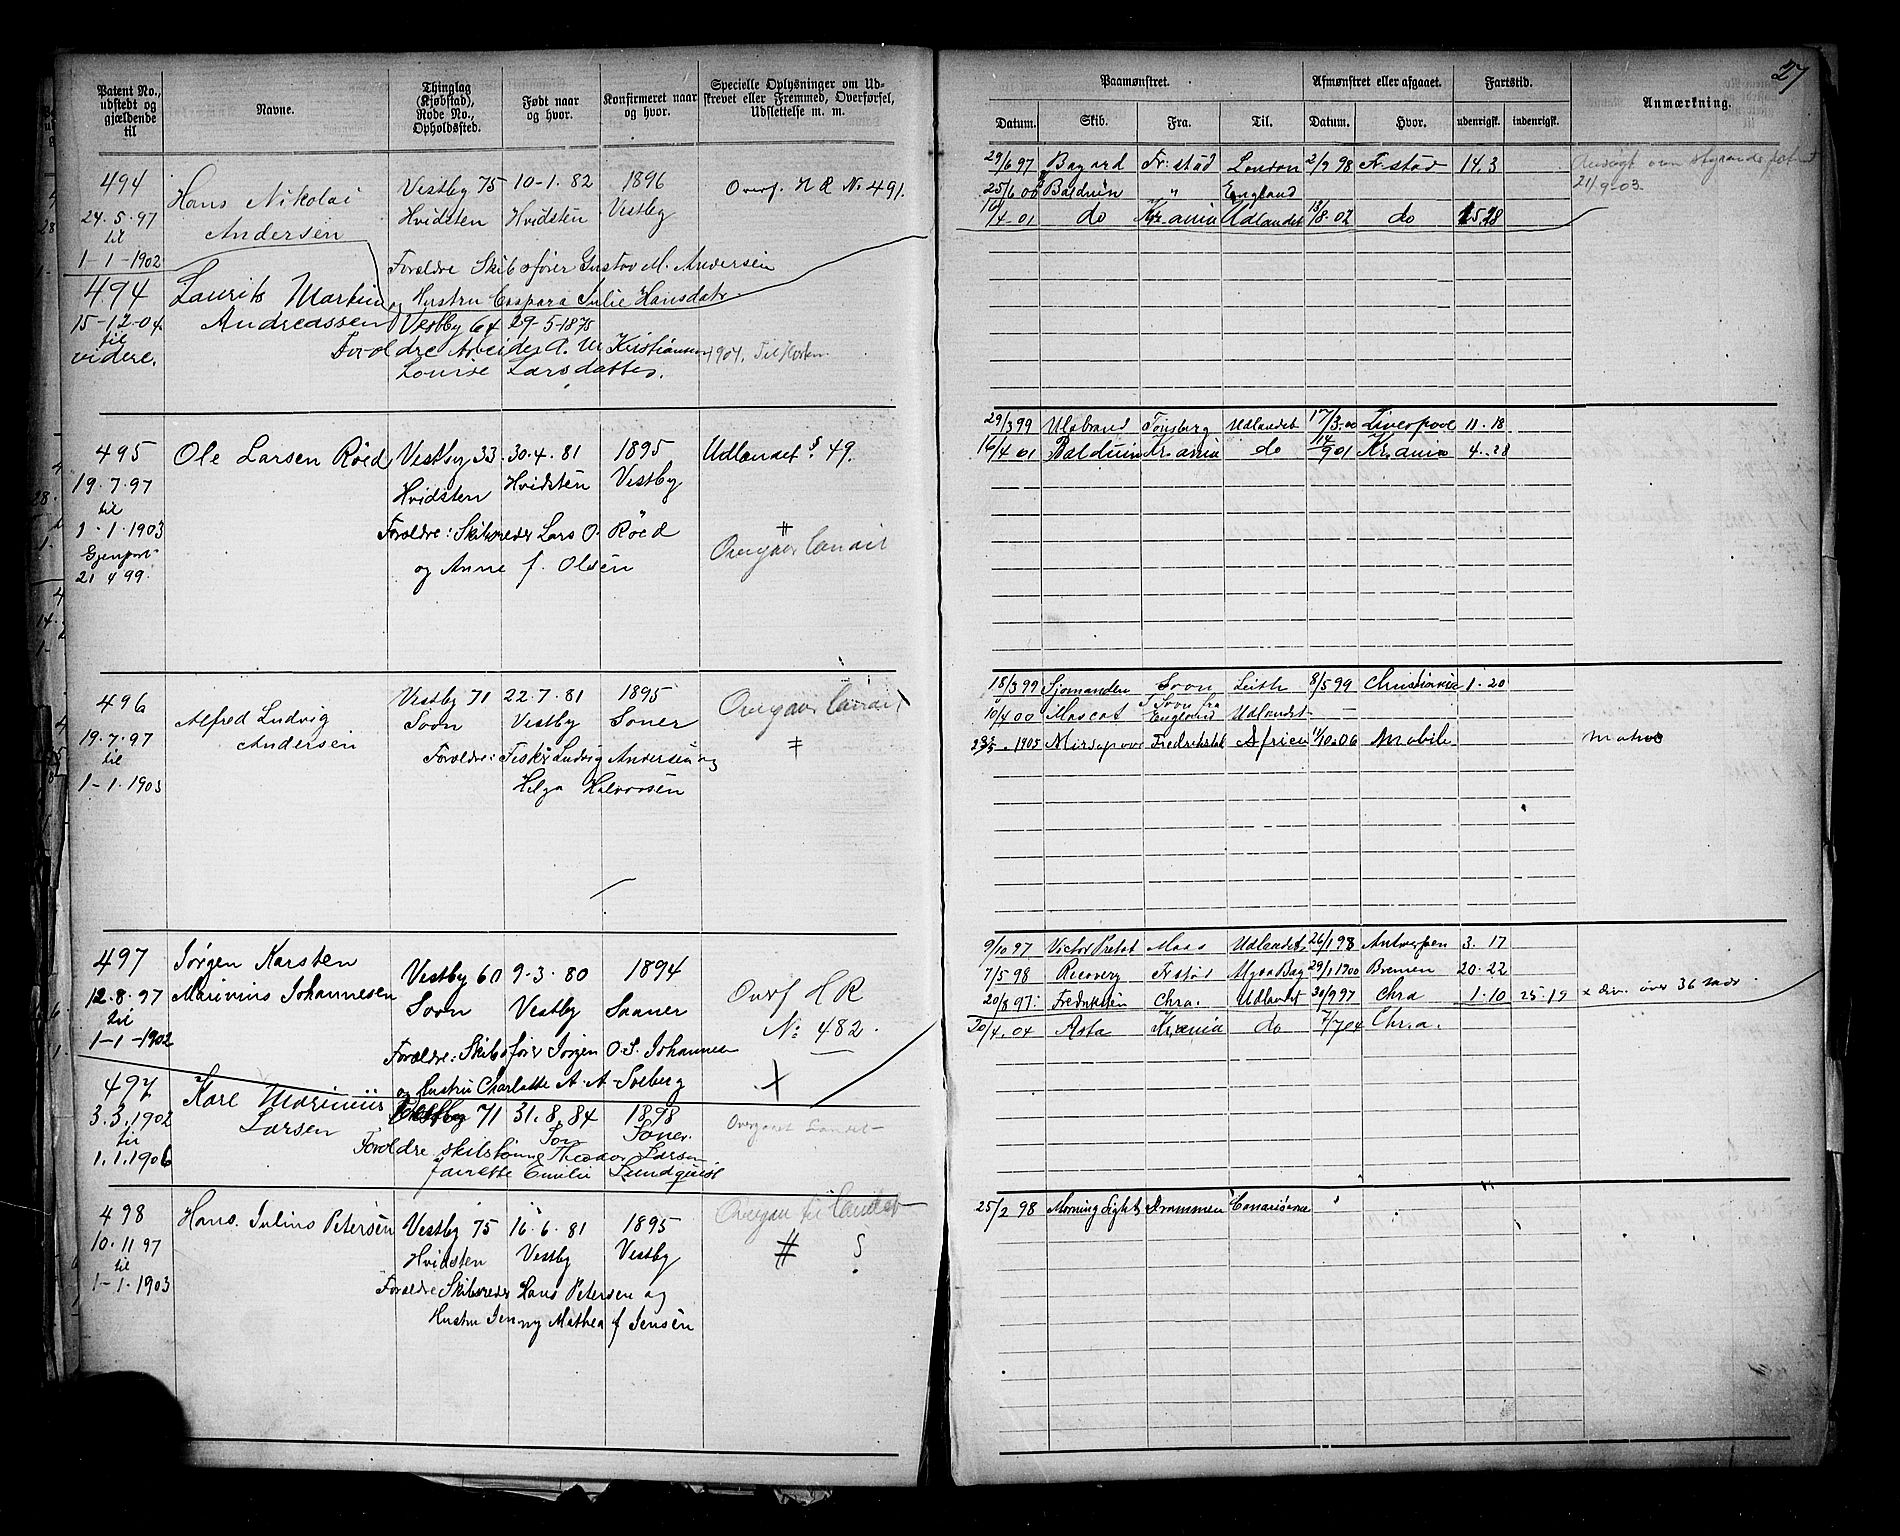 27
Patent No., udstedt og gjældende til
Navne.
Thinglag (Kjøbstad), Rode No., Opholdssted.
Født naar og hvor.
Konfirmeret naar og hvor.
Specielle Oplysninger om Udskrevet eller Fremmed, Overførsel, Udslettelse m. m.
Paamønstret.
Afmønstret eller afgaaet.
Fartstid.
Anmærkning.
Datum. Skib. Fra. Til. Datum. Hvor. udenrigsk. indenrigsk.
494
24-5-97
til
1-1-1902
Hans Nikolai
Andersen
Vestby 75 10-1.82 1896 Overf. H R No 491.
Hvidsten Hvidsten Vestby
Forældre Skibsfører Gustav M. Andersen
og Hustru Caspara Julie Hansdatr
29/6 97 Bayard Fr:stad London 2/9 98 Fr.stad 14.3
25/6 00 Balduin " England
16/4-01 do Kr.ania Udlandet 13/8-02 do 15.28
21/9-03.
494
15-12-04.
til
videre.
Laurits Martin
Andreassen
Vestby 64 29-5-1875
Forældre Arbeider A. M Kristiansen
Louise Larsdatter.
1904. Til Horten.
495
19.7.97
til
1-1.1903
Gjenpart
21 4 99.
Ole Larsen Röed
Vestby 33 30.4.81 1895 Udlændet § 49.
Hvidsten Hvidsten Vestby
Forældre: Skibsreder Lars O. Röed
og Anne f. Olsen
#
Overgaaet landet
29/3 99 Ulabrand Tönsberg Udlandet 17/3.00 Liverpool 11.18
16/4 01 Balduin Kr.ania do 14/9 01 Kr.ania 4.28
496
19.7.97
til
1-1.1903
Alfred Ludvig
Andersen
Vestby 71 22.7.81 1895
Soon Vestby Soner
Forældre: Fisker Ludvig Andersen og
Helga Halvorsen
Overgaaet landet
#
18/3 99 Sjomanden Soon Leith 8/5 99 Christiania 1.20
10/4 00 Mascot Soon fra England Udlandet
1905 Fredrikstad Africa 11/10.06 Mobile
497
12.8.97
til
1-1-1902
Jørgen Karsten
Marinius Johannesen
Vestby 60 9-3.80 1894
Soon Vestby Saaner
Forældre: Skibsfører Jörgen O. S. Johannesen
og Hustru Charlotte A. A. Solberg
Overf H R
No: 482.
X
9/10 97 Victor Pretot Moss Udlandet 26/1 98 Antwerpen 3.17
7/5 98 Recovery Fr.stad Bay 29/1 1900 Bremen 20.22
20/8 97: Chra. Udlandet 30/9 97 Chra 1.10 25.19 x div. över 36 
20/4.04 Asta Kr.ania do 7/7 04 Chr.a.
497
3.3.1902
til
1.1.1906
Karl Marinius
Larsen
Vestby 71 31.8.84 1898
Son Soner.
Forældre Theodor Larsen
Emilie Lundquist
Overgaaet Landet
498
10.11 97
til
1-1.1903
Hans Julius Petersen
Vestby 75 16.6.81 1895
Hvidsten Vestby Vestby
Forældre Skibsreder Hans Petersen og
Hustru Jenny Mathea f Jensen
Overgaa til landet
#
25/2 98 Morning Light Drammen Canariøerne